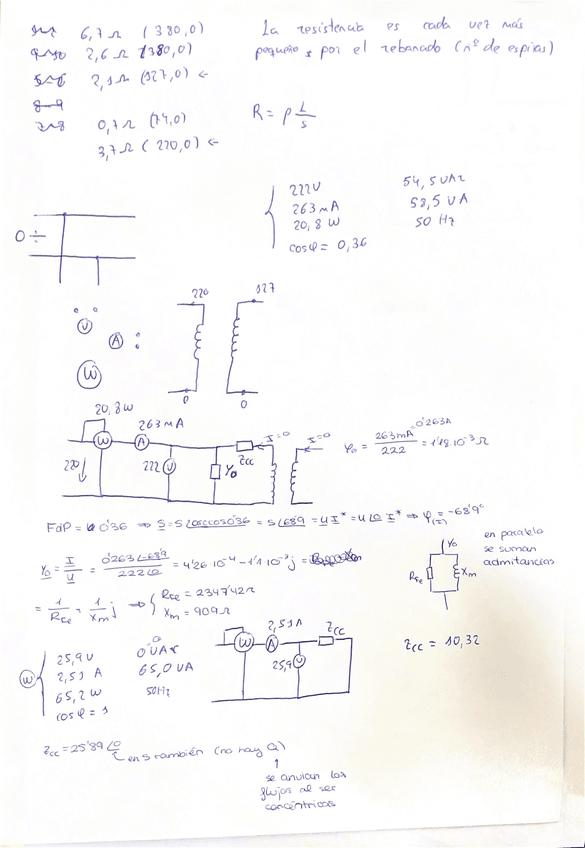 6,7 Ω (380,0)
2,6 Ω (380,0)
5-6 2,1 Ω (127,0) ←
8-9
7-8 0,7 Ω (74,0)
3,7 Ω (220,0) ←
La resistencia es cada vez más
pequeña, por el rebanado (nº de espiras)
R = ρ L/S
222V
263 mA
20,8 W
cosφ = 0,36
54,5 VAr
58,5 VA
50 Hz
0 ÷
V
A
W
220
127
0
0
20,8 W
263 mA
W
A
220
222
V
Y₀
Zcc
I=0
I=0
Y₀ = 263mA/222 = 1'18·10⁻³ Ω
0'263A
FdP = 0'36 ⇒ S = S∠arccos0'36 = S∠68'9 = U I* = U∠0 I* ⇒ φ(I) = -68'9°
Y₀ = I/U = 0'263∠-68'9/222∠0 = 4'26·10⁻⁴ - 1'1·10⁻³j
= 1/RFe + 1/Xm j ⇒ { RFe = 2347'42Ω
Xm = 909Ω
en paralelo
se suman
admitancias
Y₀
RFe
Xm
W
25,9 V
2,51 A
65,2 W
cosφ = 1
0 VAr
65,0 VA
50Hz
W
2,51A
A
25,9
V
Zcc
Zcc = 10,32
Zcc = 25'89∠0
en S también (no hay Q)
↑
se anulan los
flujos al ser
concéntricos